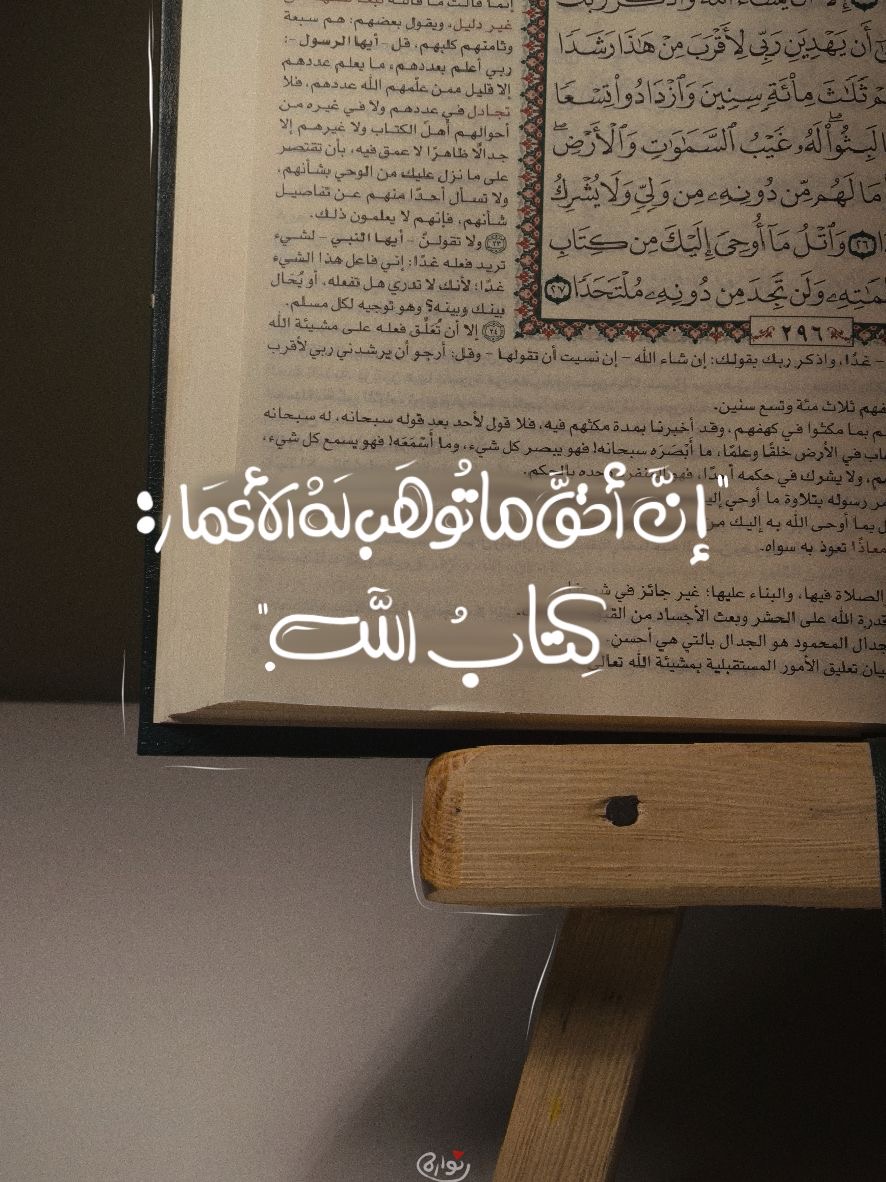 غير دليل، ويقول بعضهم: هم سبعة
وثامنهم كلبهم، قل - أيها الرسول -:
ربي أعلم بعددهم، ما يعلم عددهم
إلا قليل ممن علّمهم الله عددهم، فلا
تجادل في عددهم ولا في غيره من
أحوالهم أهل الكتاب ولا غيرهم إلا
جدالًا ظاهرًا لا عمق فيه، بأن تقتصر
على ما نزل عليك من الوحي بشأنهم،
ولا تسأل أحدًا منهم عن تفاصيل
شأنهم، فإنهم لا يعلمون ذلك.
٢٣ ولا تقولنّ - أيها النبي - لشيء
تريد فعله غدًا: إني فاعل هذا الشيء
غدًا؛ لأنك لا تدري هل تفعله، أو يُحَال
بينك وبينه؟ وهو توجيه لكل مسلم.
٢٤ إلا أن تُعَلِّق فعله على مشيئة الله
أَن يَهْدِيَنِ رَبِّى لِأَقْرَبَ مِنْ هَٰذَا رَشَدًا
ثَلَٰثَ مِاْئَةٍ سِنِينَ وَٱزْدَادُوا۟ تِسْعًا
لَبِثُوا۟ لَهُۥ غَيْبُ ٱلسَّمَٰوَٰتِ وَٱلْأَرْضِ
مَا لَهُم مِّن دُونِهِۦ مِن وَلِىٍّ وَلَا يُشْرِكُ
٢٦ وَٱتْلُ مَآ أُوحِىَ إِلَيْكَ مِن كِتَابِ
وَلَن تَجِدَ مِن دُونِهِۦ مُلْتَحَدًا ٢٧
٢٩٦
- غدًا، واذكر ربك بقولك: إن شاء الله - إن نسيت أن تقولها - وقل: أرجو أن يرشدني ربي لأقرب
ثلاث مئة وتسع سنين.
بما مكثوا في كهفهم، وقد أخبرنا بمدة مكثهم فيه، فلا قول لأحد بعد قوله سبحانه، له سبحانه
في الأرض خلقًا وعلمًا، ما أَبْصَرَه سبحانه! فهو يبصر كل شيء، وما أَسْمَعَه! فهو يسمع كل شيء،
ولا يشرك في حكمه بالحكم.
رسوله بتلاوة ما أوحي
بما أوحى الله به إليك
معاذًا تعوذ به سواه.
"إنَّ أحَقَّ ما تُوهَب لَهُ الأعمَار:
كِتابُ اللَّه."
الصلاة فيها، والبناء عليها؛ غير جائز في
قدرة الله على الحشر وبعث الأجساد من
جدال المحمود هو الجدال بالتي هي أحسن.
بيان تعليق الأمور المستقبلية بمشيئة الله تعالى